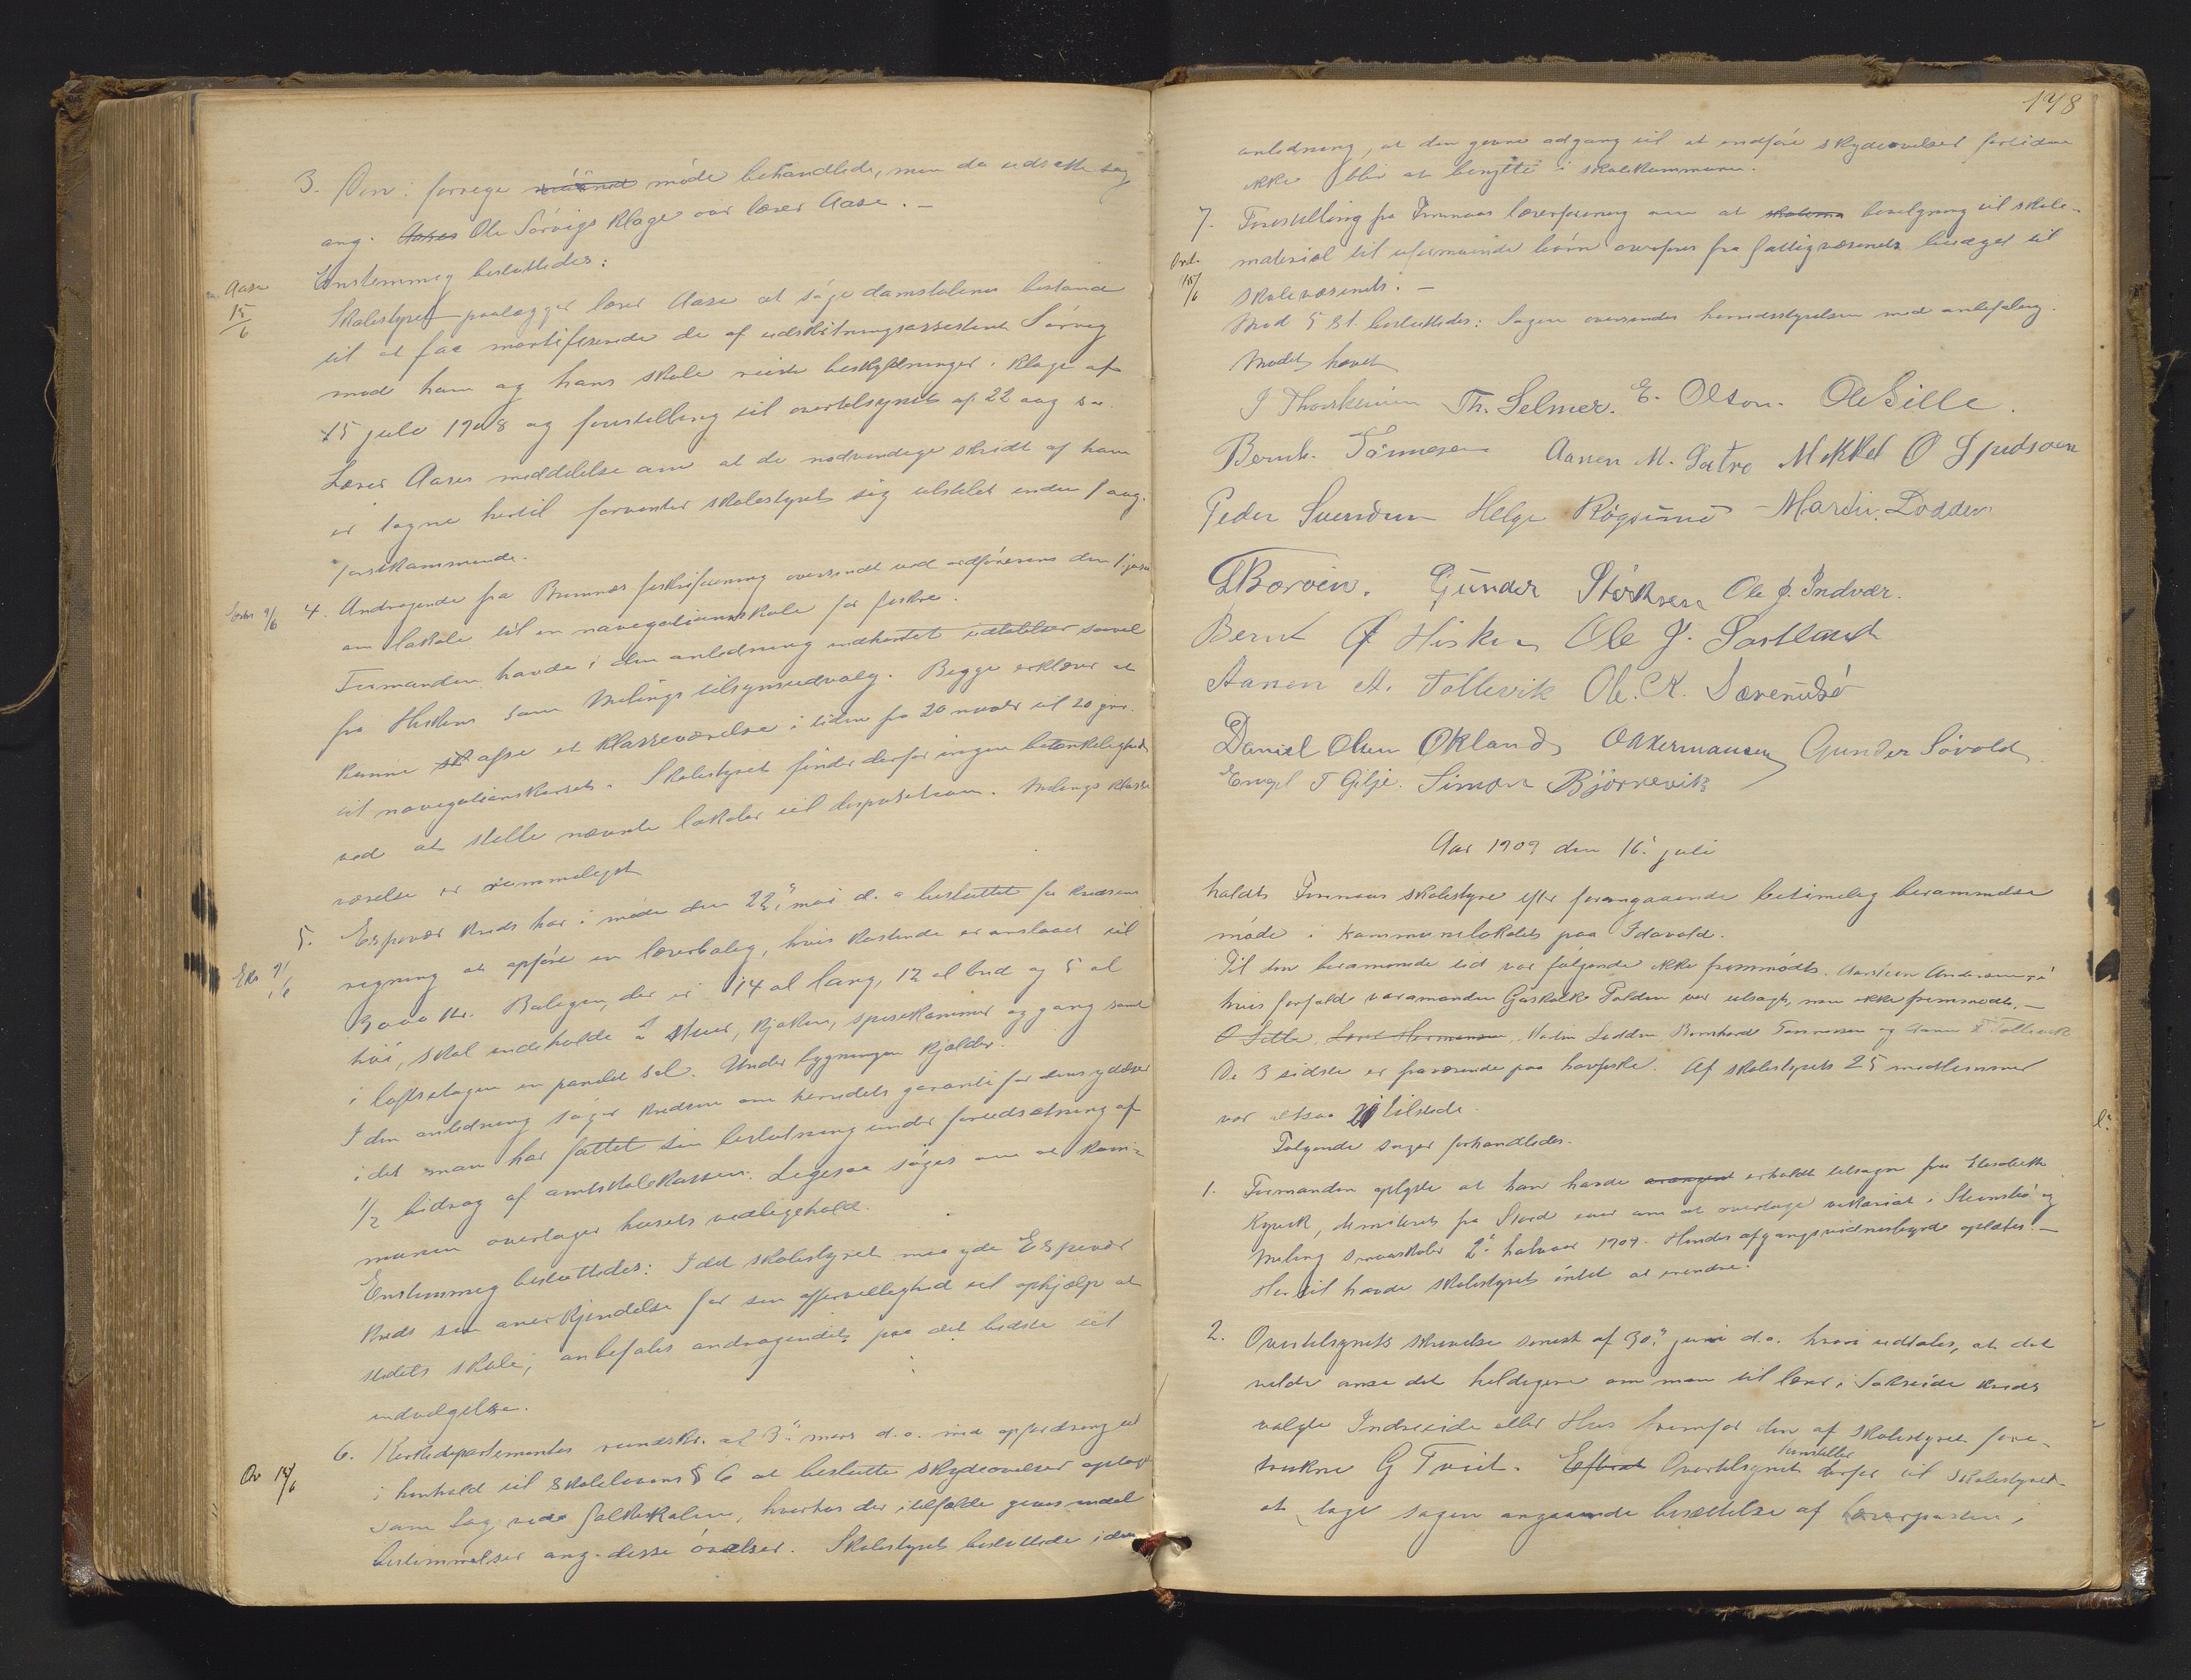 3. Den i forrige møde behandlede, men da udsatte sag
ang. Ole Sørvigs klage over lærer Aase. –
Enstemmig besluttedes:
Aase 15/6
Skolestyret paalægger lærer Aase at søge domstolenes bistand
til at faa mortificerede de af udskiftningsassistent Sørvig
mod ham og hans skole reiste beskyldninger i klage af
15 juli 1908 og forestilling til overtilsynet af 22 aug s.a.
Lærer Aases meddelelse om at de nødvendige skridt af ham
er tagne hertil forventer skolestyret sig tilstilet inden 1 aug.
førstkommende.
9/6
4. Andragende fra Bremnes fiskeriforening oversendt ved ordføreren den 1 juni
om lokale til en navigationsskole for fiskere.
Formanden havde i den anledning indhentet udtalelser saavel
fra Hiskens som Melings tilsynsudvalg. Begge erklærer at
kunne afse et klasseværelse i tiden fra 20 novbr til 20 jan.
til navigationskurset. Skolestyret finder derfor ingen betænkelighed
ved at stille nævnte lokaler til disposition. Melings klasse
værelse er rummeligst
5. Espevær kreds har i møde den 22. mai d. a besluttet for kredsens
regning at opføre en lærerbolig, hvis kostende er anslaaet til
3000 kr. Boligen, der er 14 al lang, 12 al bred og 5 al
høi, skal indeholde 2 stuer, kjøken, spisekammer og gang samt
i loftsetagen en panelet sal. Under bygningen kjælder.
I den anledning søger kredsen om herredets garanti for dens ydelser
idet man har fattet sin beslutning under forudsætning af
1/2 bidrag af amtsskolekassen. Ligesaa søges om at kom-
munen overtager husets vedligehold.
Enstemmig besluttedes: Idet skolestyret maa yde Espevær
kreds sin anerkjendelse for sin offervillighed til ophjælp at
stedets skole, anbefales andragendet paa det bedste til
indvilgelse.
6. Kirkedepartementets rundskr. af 3. mars d.a. med opfordring til
i henhold til skolelovens § 6 at beslutte skydeøvelser optaget
som fag ved folkeskolen, hvorhos der i tilfælde gives endel
bestemmelser ang. disse øvelser. Skolestyret besluttede i den
148
anledning, at den givne adgang til at indføre skydeøvelser fortiden
ikke blir at benytte i skolekommunen.
7. Forestilling fra Finnaas lærerforening om at bevilgning til skole-
material til uformuende børn overføres fra fattigvæsenets budget til
15/6
skolevæsenets. –
Mod 5 st. besluttedes: Sagen oversendes herredsstyrelsen med anbefaling.
Mødet hævet
Th. Selmer. E. Olson. Ole Sille.
Bernh. Tønnesen Aanen M. Sætre Mikkel O
Peder Svendsen Helge Røgsund Martin Lodden
Gunder Størksen Ole J. Indvær.
Bernt Hisken Ole J. Sortland
Aanen A. Tollevik Ole. K.
Daniel Olsen Økland O Hermansen Gunder Søvold
Engel T Gilje. Simon Bjørnevik
Aar 1909 den 16. juli
holdt Finnaas skolestyre efter forangaaende betimelig berammelse
møde i kommunelokalet paa Idavold.
Til den berammede tid var følgende ikke fremmødt. Aarstein Andersen i
hvis forfald varamanden Gaskolk Folden var tilsagt, men ikke fremmødt, –
O Sille, Lars Hermansen, Martin Lodden, Bernhard Tønnesen og Aanen A Tollevik
De 3 sidste er fraværende paa havfiske. Af skolestyrets 25 medlemmer
var altsaa 21 tilstede.
Følgende sager forhandledes.
1. Formanden oplyste at han havde erholdt tilsagn fra Elisabeth
Kyvik, dimitteret fra Stord om at overtage vikariat i Steensbø og
Meling smaaskoler 2. halvaar 1909. Hendes afgangsvidnesbyrd oplæstes. –
Hertil havde skolestyret intet at erindre.
2. Overtilsynets skrivelse senest af 30. juni d.a. hvori udtales, at det
vilde anse det heldigere om man til lærer i kreds
valgte Indreeide eller Hus fremfor den af skolestyret fore-
trukne G Tveit. Overtilsynet henstiller derfor til skolestyret
at tage sagen angaaende besættelse af lærerposten i